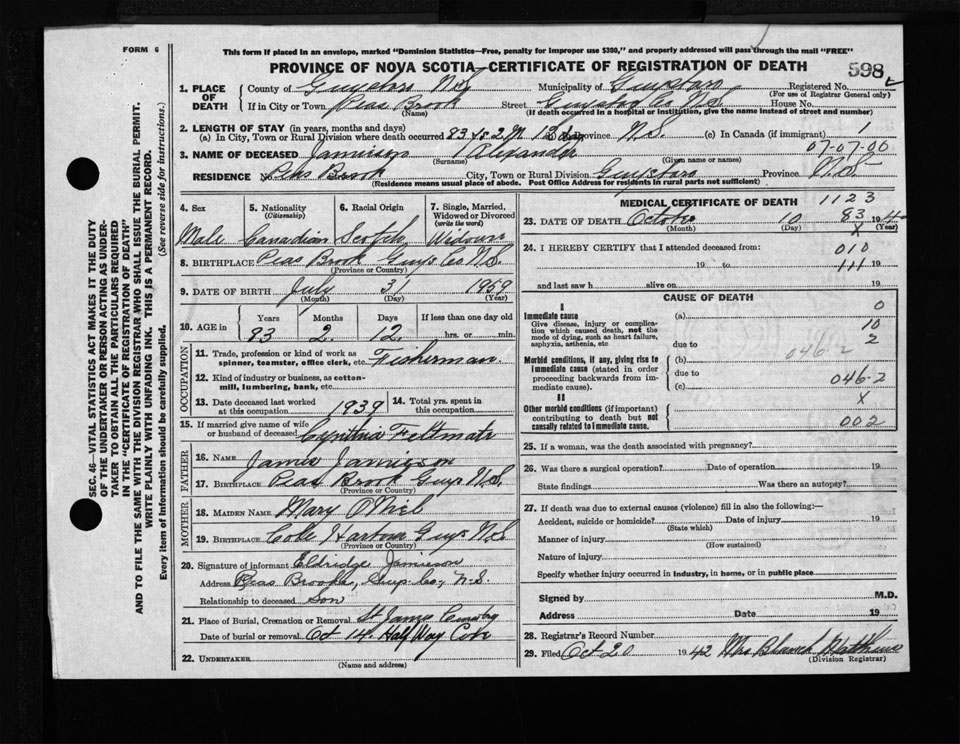 FORM 6
This form if placed in an envelope, marked "Dominion Statistics—Free, penalty for improper use $300," and properly addressed will pass through the mail "FREE"
PROVINCE OF NOVA SCOTIA—CERTIFICATE OF REGISTRATION OF DEATH
598
1. PLACE OF DEATH
County of Guysboro N.S. Municipality of Guysboro Registered No.
(For use of Registrar General only)
If in City or Town Peas Brook Street Guysboro Co N.S. House No.
(Name) (If death occurred in a hospital or institution, give the name instead of street and number)
2. LENGTH OF STAY (in years, months and days)
(a) In City, Town or Rural Division where death occurred 83 2 M 12 d Province N.S. (c) In Canada (if immigrant) 1
3. NAME OF DECEASED Jamieson Alexander 07-07-00
(Surname) (Given name or names)
RESIDENCE Peas Brook City, Town or Rural Division Guysboro Province N.S.
(Residence means usual place of abode. Post Office Address for residents in rural parts not sufficient)
4. Sex 5. Nationality (Citizenship) 6. Racial Origin 7. Single, Married, Widowed or Divorced (write the word)
Male Canadian Scotch Widower
8. BIRTHPLACE Peas Brook Guys. Co. N.S.
(Province or Country)
9. DATE OF BIRTH July 31 1959
(Month) (Day) (Year)
10. AGE in Years Months Days If less than one day old
83 2 12 hrs. or min.
OCCUPATION
11. Trade, profession or kind of work as spinner, teamster, office clerk, etc. Fisherman
12. Kind of industry or business, as cotton-mill, lumbering, bank, etc.
13. Date deceased last worked at this occupation 1939 14. Total yrs. spent in this occupation
15. If married give name of wife or husband of deceased Cynthia Feltmate
FATHER
16. NAME James Jamieson
17. BIRTHPLACE Peas Brook Guys N.S.
(Province or Country)
MOTHER
18. MAIDEN NAME Mary O'Niel
19. BIRTHPLACE Cole Harbour Guys N.S.
(Province or Country)
20. Signature of informant Eldridge Jamieson
Address Peas Brook, Guys. Co., N.S.
Relationship to deceased Son
21. Place of Burial, Cremation or Removal St James Cemetry
Date of burial or removal Oct 14 Half Way Cove
22. UNDERTAKER
(Name and address)
MEDICAL CERTIFICATE OF DEATH 1123
23. DATE OF DEATH October 10 194
83
(Month) (Day) (Year)
X
24. I HEREBY CERTIFY that I attended deceased from:
010
19 to 111 19
and last saw h alive on 19
CAUSE OF DEATH
I
Immediate cause
Give disease, injury or complication which caused death, not the mode of dying, such as heart failure, asphyxia, asthenia, etc
(a) 0
10
due to 2
Morbid conditions, if any, giving rise to immediate cause (stated in order proceeding backwards from immediate cause).
(b) 046-2
due to
(c) 046-2
II
X
Other morbid conditions (if important) contributing to death but not causally related to immediate cause.
002
25. If a woman, was the death associated with pregnancy?
26. Was there a surgical operation? Date of operation 19
State findings Was there an autopsy?
27. If death was due to external causes (violence) fill in also the following:—
Accident, suicide or homicide? Date of injury 19
(State which)
Manner of injury
(How sustained)
Nature of injury
Specify whether injury occurred in industry, in home, or in public place
Signed by M.D.
Address Date 19
28. Registrar's Record Number
29. Filed Oct 20 1942 Mrs Blanch Matthews
(Division Registrar)
SEC. 46—VITAL STATISTICS ACT MAKES IT THE DUTY
OF THE UNDERTAKER OR PERSON ACTING AS UNDER-
TAKER TO OBTAIN ALL THE PARTICULARS REQUIRED
IN THE "CERTIFICATE OF REGISTRATION OF DEATH"
AND TO FILE THE SAME WITH THE DIVISION REGISTRAR WHO SHALL ISSUE THE BURIAL PERMIT.
WRITE PLAINLY WITH UNFADING INK. THIS IS A PERMANENT RECORD.
Every item of information should be carefully supplied. (See reverse side for instructions.)